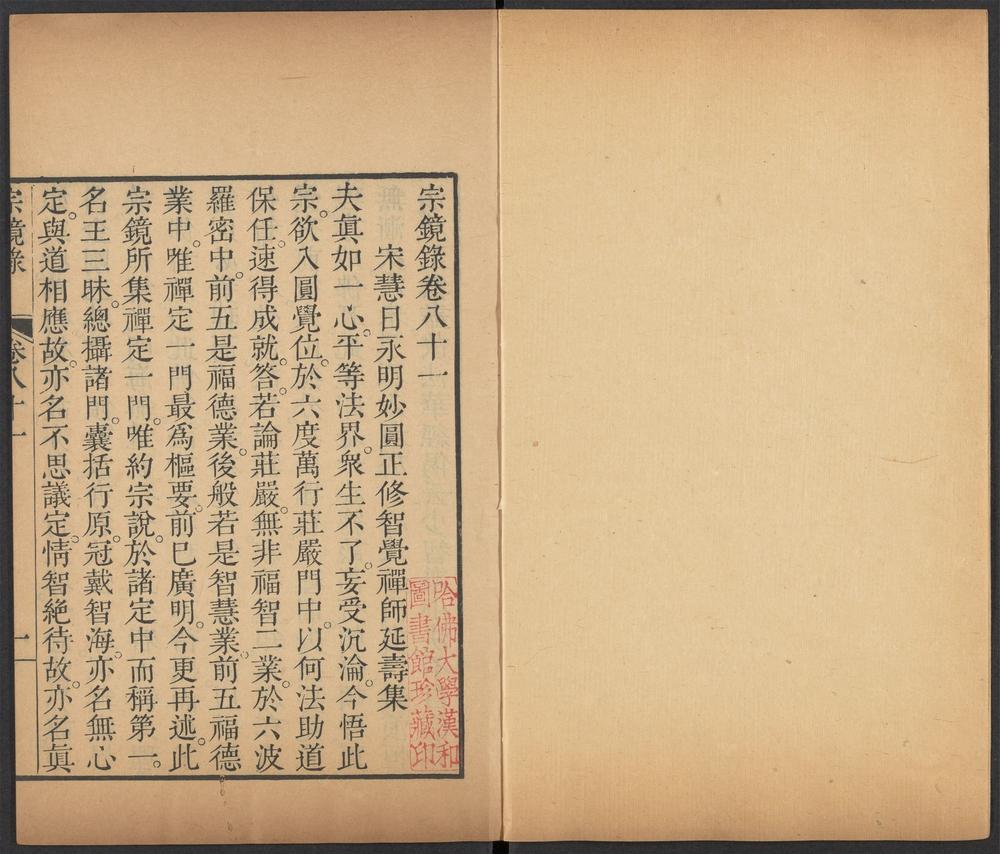 宗鏡錄卷八十一
宋慧日永明妙圓正修智覺禪師延壽集
夫眞如一心。平等法界。衆生不了。妄受沉淪。今悟此
宗。欲入圓覺位。於六度萬行莊嚴門中。以何法助道
保任。速得成就。答。若論莊嚴。無非福智二業。於六波
羅密中。前五是福德業。後般若是智慧業。前五福德
業中。唯禪定一門。最爲樞要。前已廣明。今更再述。此
宗鏡所集禪定一門。唯約宗說。於諸定中而稱第一。
名王三昧。總攝諸門。囊括行原。冠戴智海。亦名無心
定。與道相應故。亦名不思議定。情智絶待故。亦名眞
宗鏡錄 卷八十一 一
哈佛大學漢和
圖書館珍藏印